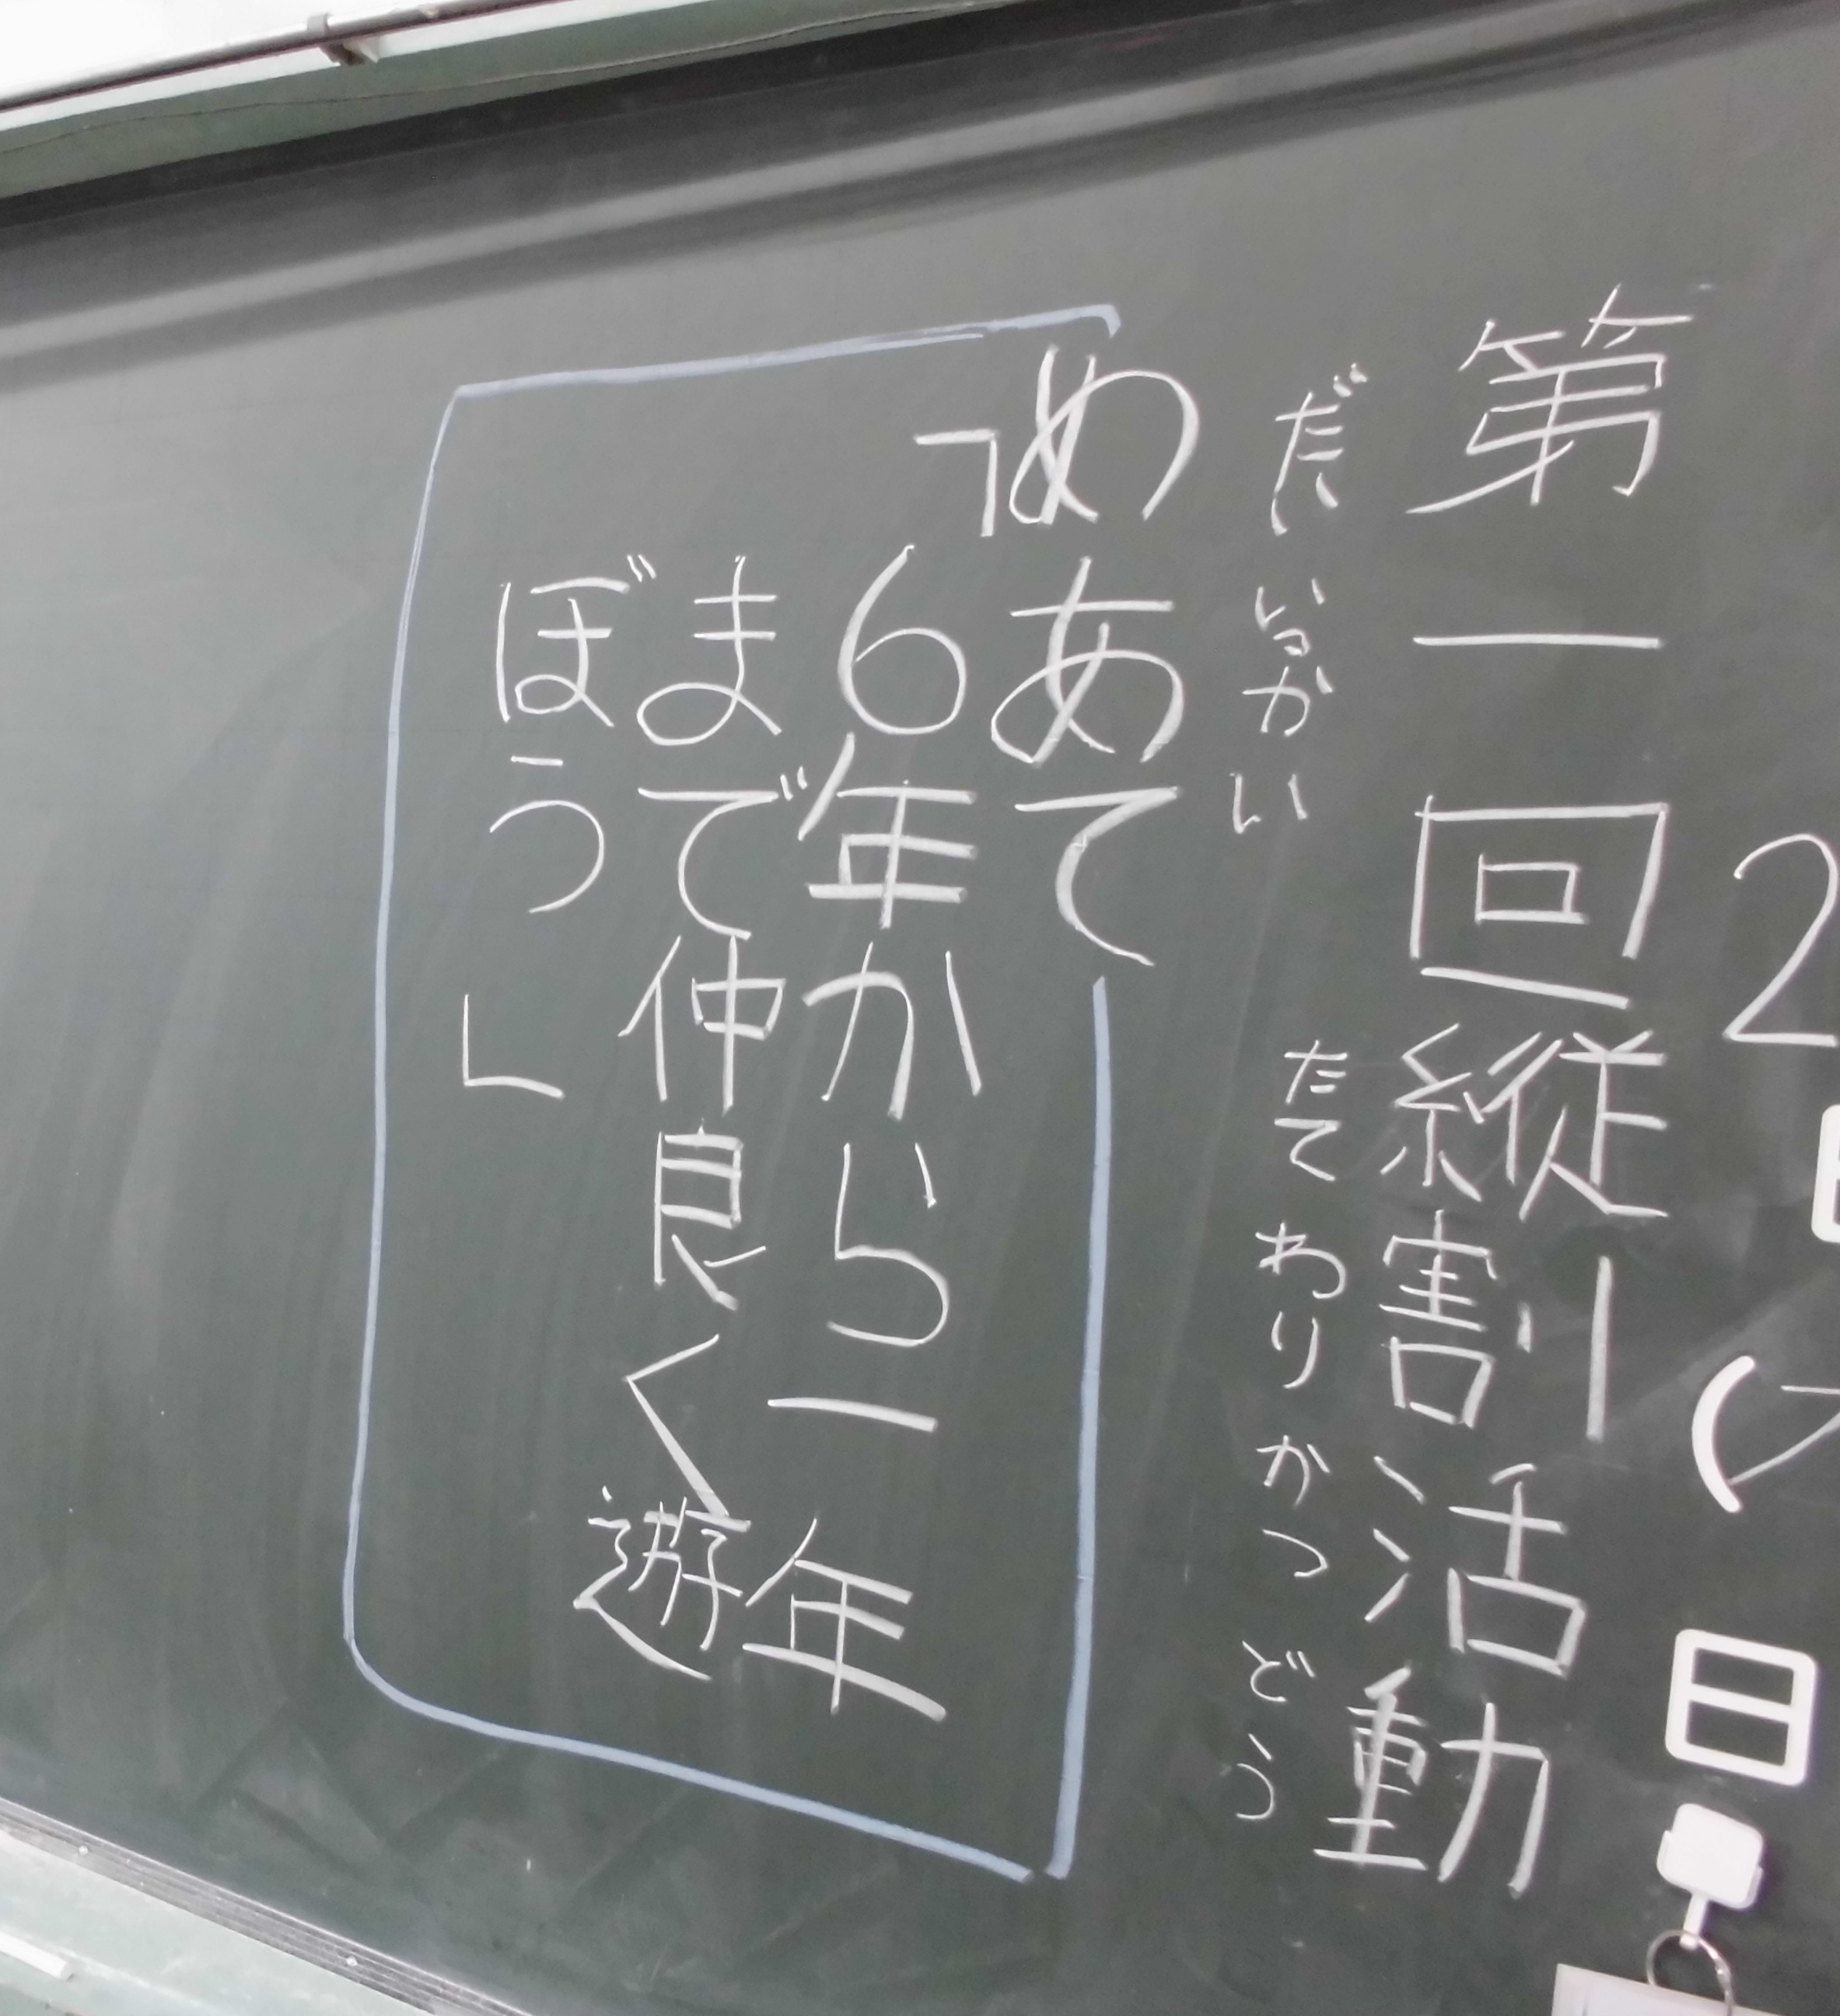 2 日
第一回縦割活動
だいいっかい たてわりかつどう
めあて
「6年から一年
まで仲良く遊
ぼう」